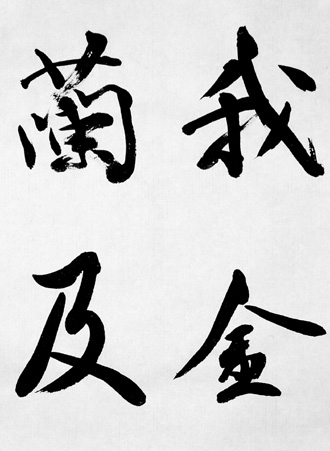 我金
蘭及